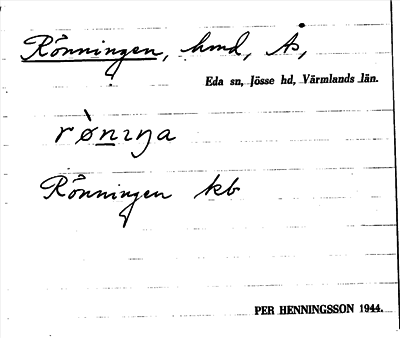 Rönningen, hmd, Ås,
Eda sn, Jösse hd, Värmlands län.
rø̀nıŋa
Rönningen kb
PER HENNINGSSON 1944.